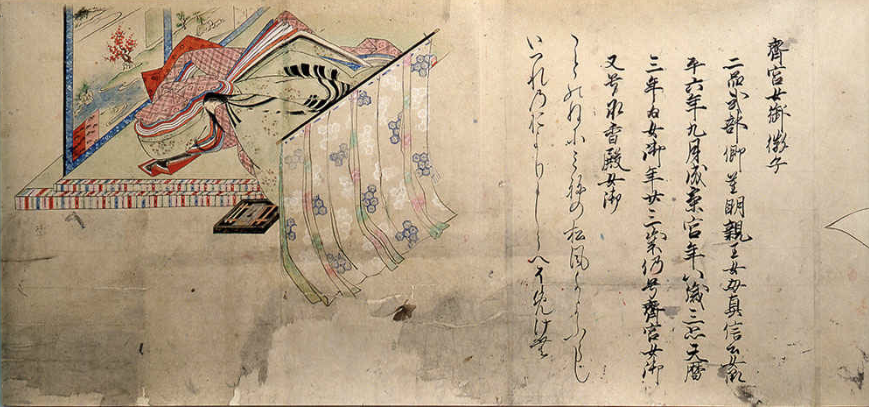 齊宮女御 徽子
二品式部卿重明親王女母真信公女承
平六年九月為齊宮年八歳三品天暦
三年為女御年廿三仍号齊宮女御
又号承香殿女御
ことのねにみねの松風かよふらし
いつれのおよりしらへそめけむ